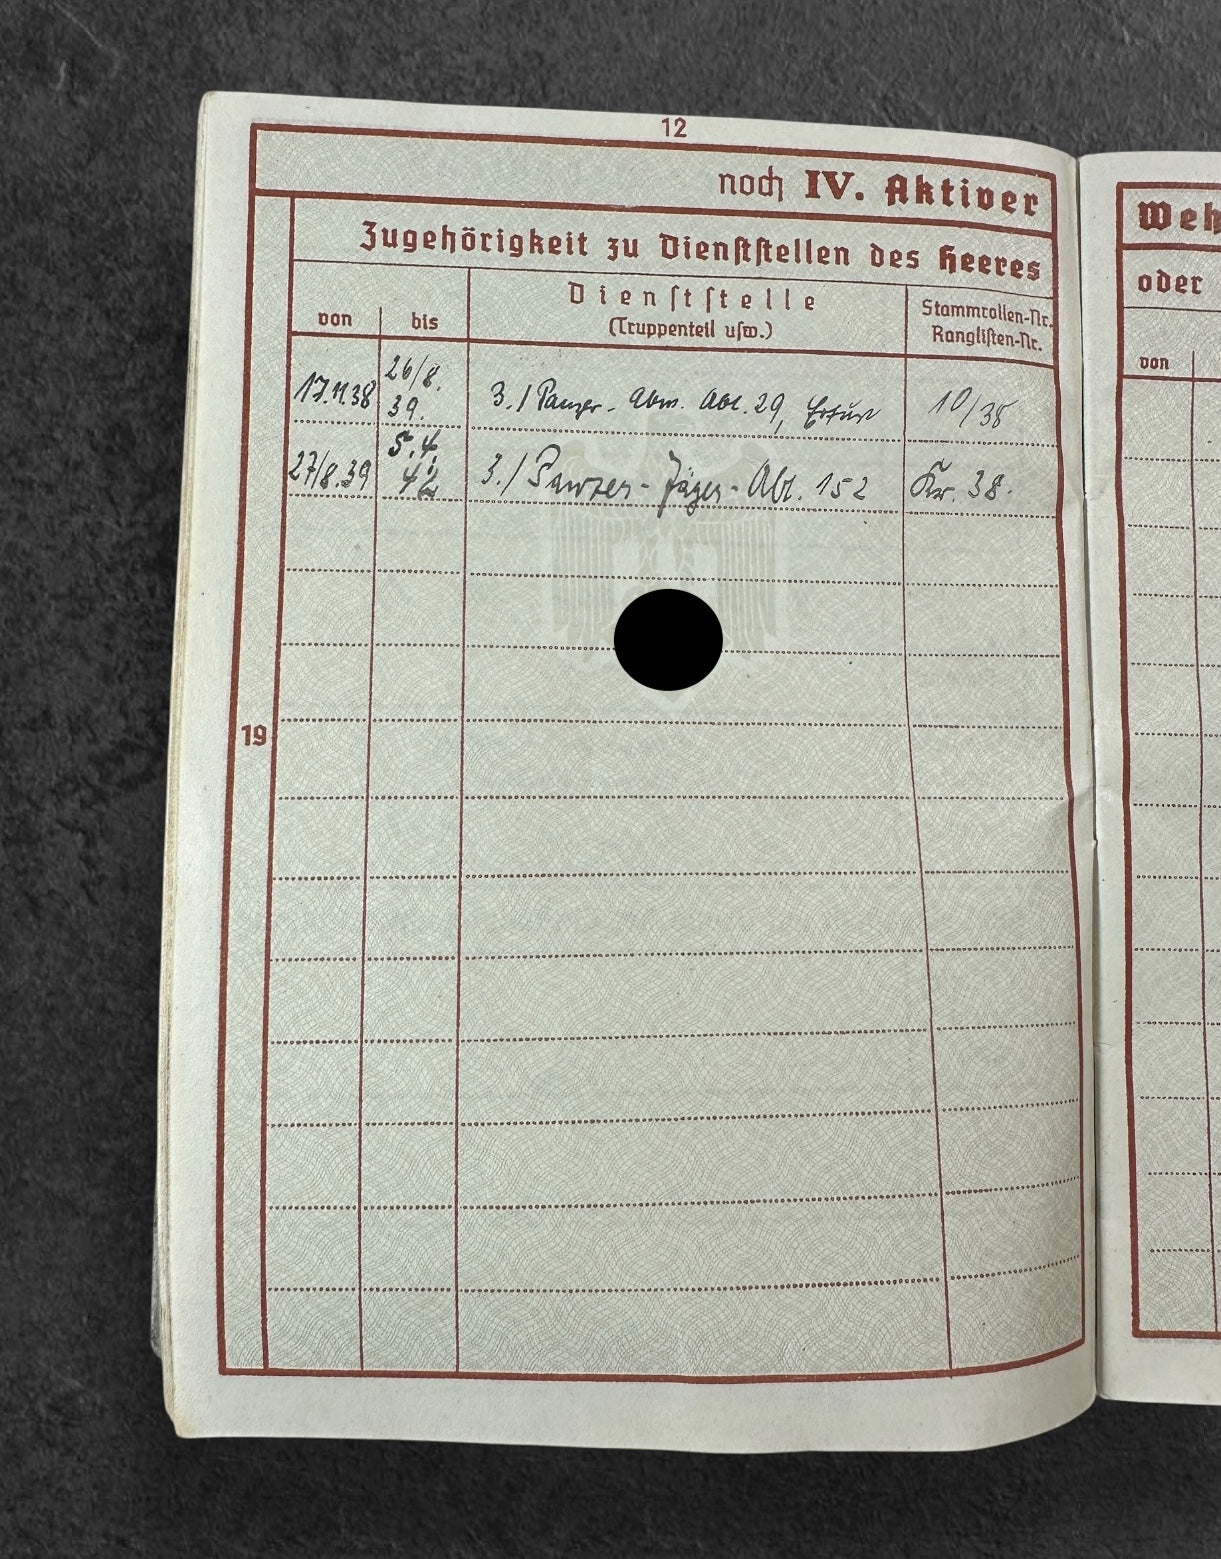 12
noch IV. Aktiver
Zugehörigkeit zu Dienststellen des Heeres
von
bis
Dienststelle
(Truppenteil usw.)
Stammrollen-Nr.
Ranglisten-Nr.
17.11.38
26/8.
39.
3./Panzer-Abw. Abt. 29, Erfurt
10/38
27/8.39
5.4.
42
3./Panzer-Jäger-Abt. 152
Kr. 38.
19
Weh
oder
von